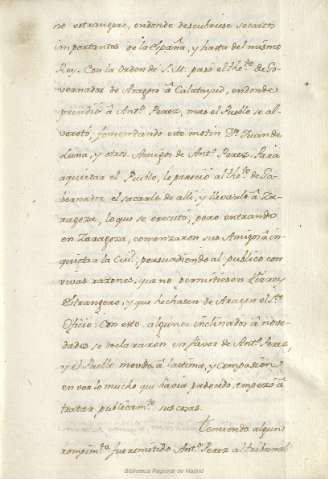 no estrangero, endonde descubriese secretos
importantes de la España, y hasta del mismo
Rey. Con la Orden de S. M. pasó el The.te de Go-
vernador de Aragon à Calatayud, endonde
prendió à Ant.o Perez, mas el Pueblo se al-
vorotó, fomentando este motin Dn. Juan de
Luna, y otros Amigos de Ant.o Perez. Para
aquietar el Pueblo, le pareció al The.te de Go-
bernador el sacarle de alli, y llevarle à Za-
ragoza, lo que se executó; pero entrando
en Zaragoza, comenzaron sus Amigos à in-
quietar la Ciu.d, persuadiendo al publico con
vivas razones, que no permitiesen Juezes
Estrangeros, y que hechasen de Aragon el S.to
Oficio. Con esto algunos inclinados à nove-
dades se declararon en favor de Ant.o Perez,
y el Pueblo movido à lastima, y compasion
en ver lo mucho que havia padecido, empezó à
tratar publicam.te sus cosas.
Temiendo algun
rompim.to fue remitido Ant.o Perez al tribunal
Biblioteca Regional de Madrid